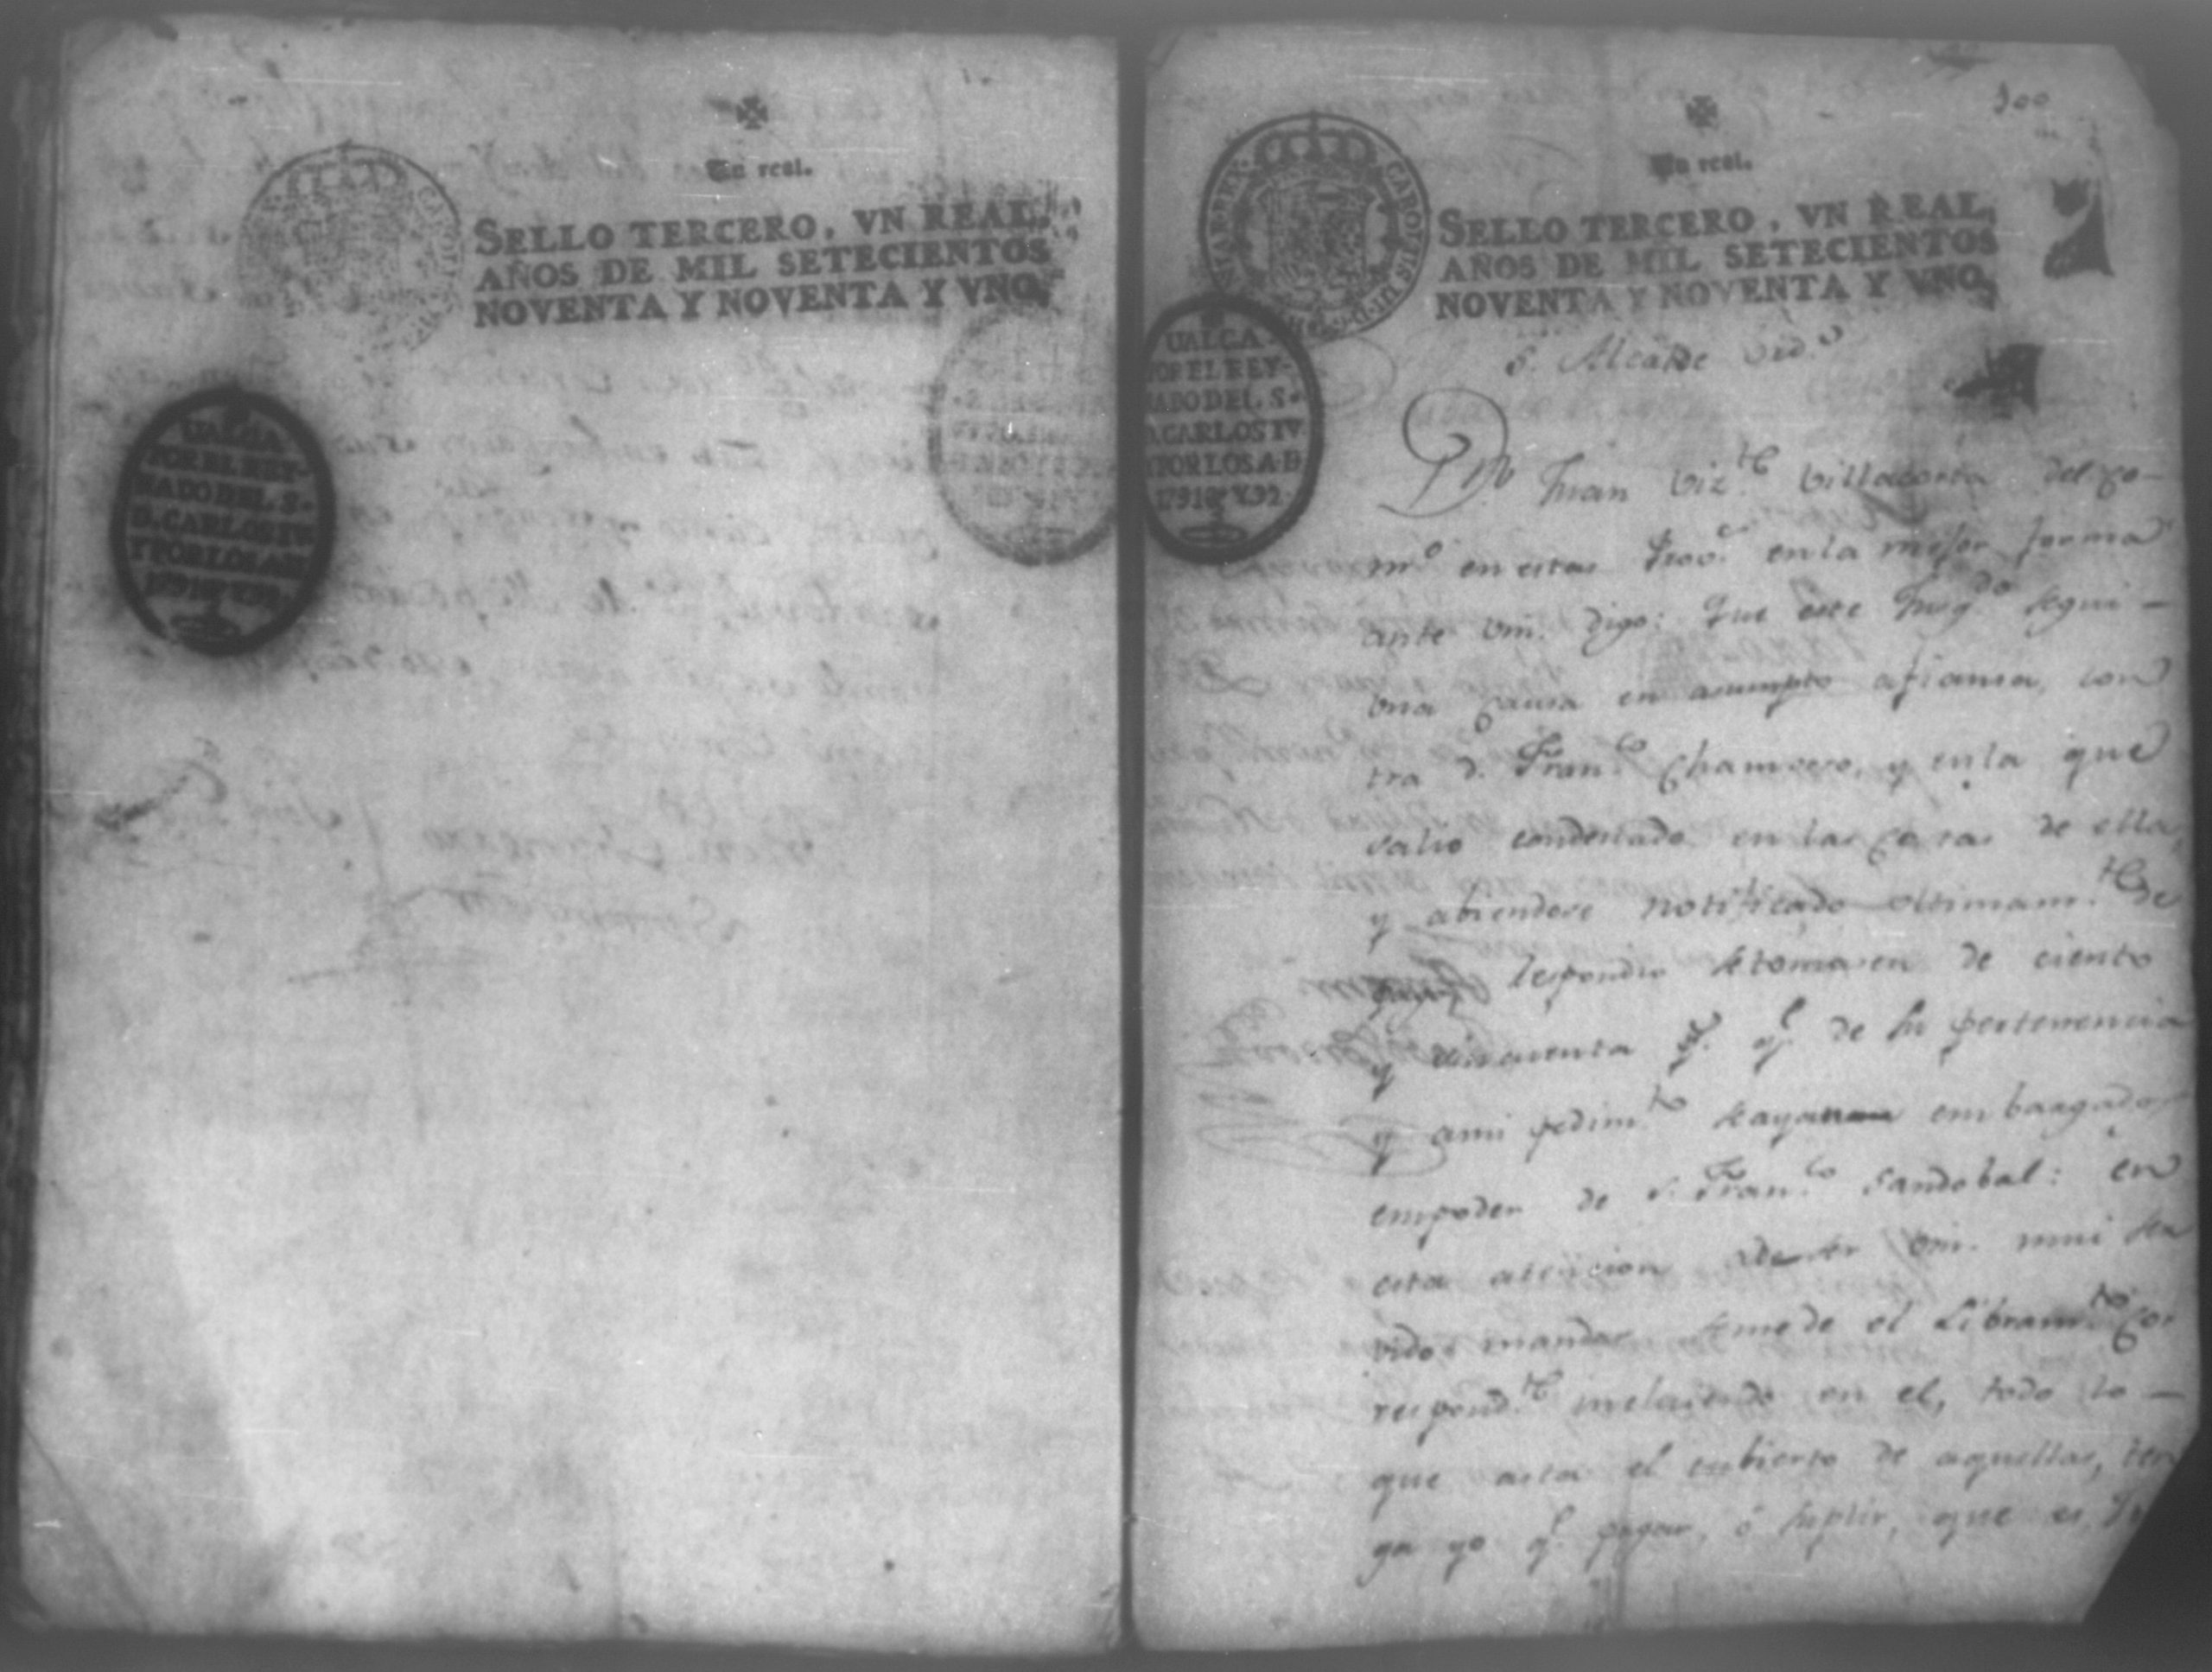 Un real.
SELLO TERCERO, VN REAL,
AÑOS DE MIL SETECIENTOS
NOVENTA Y NOVENTA Y VNO,
UALGA
POR EL REY-
NADO DEL S.
D. CARLOS IV
Y POR LOS A. D
1791 Y 92
100
Un real.
SELLO TERCERO, VN REAL,
AÑOS DE MIL SETECIENTOS
NOVENTA Y NOVENTA Y VNO,
CAROLUS
UALGA
POR EL REY-
NADO DEL S.
D. CARLOS IV
Y POR LOS A. D
1791 Y 92
S. Alcalde ord.o
Dn Juan Viz.te Villacorta del co-
mr.o en estas Prov.s en la mejor forma
ante Vm. Digo: Que este Juzg.do segui-
una causa en asumpto afianza, con
tra D. Fran.co Chamorro, y en la que
salio condenado en las costas de ella,
y abiendose notificado ultimam.te de
respondio se tomasen de ciento
y cincuenta p.s q.e de su pertenencia
y ami pedim.to embargados
empoder de D. Fran.co Sandobal: en
esta atencion Vm. mui ser
vido mandar seme de el Libram.to cor
respond.te incluiendo en el, todo lo-
que asta el cubierto de aquellas, ten
ga yo q.e pagar, ó suplir, que es